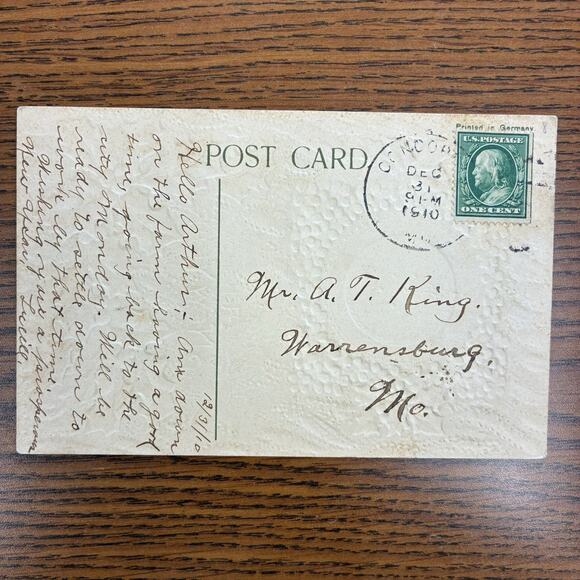 Printed in Germany
POST CARD
U.S. POSTAGE
ONE CENT
DEC
31
9 A-M
1910
Mr. A. T. King.
Warrensburg,
Mo.
12/31/10
Hello Arthur: Am down
on the farm having a good
time, going back to the
city Monday. Will be
ready to settle down to
work by that time.
Wishing you a prosperous
New Year,
Lucill.